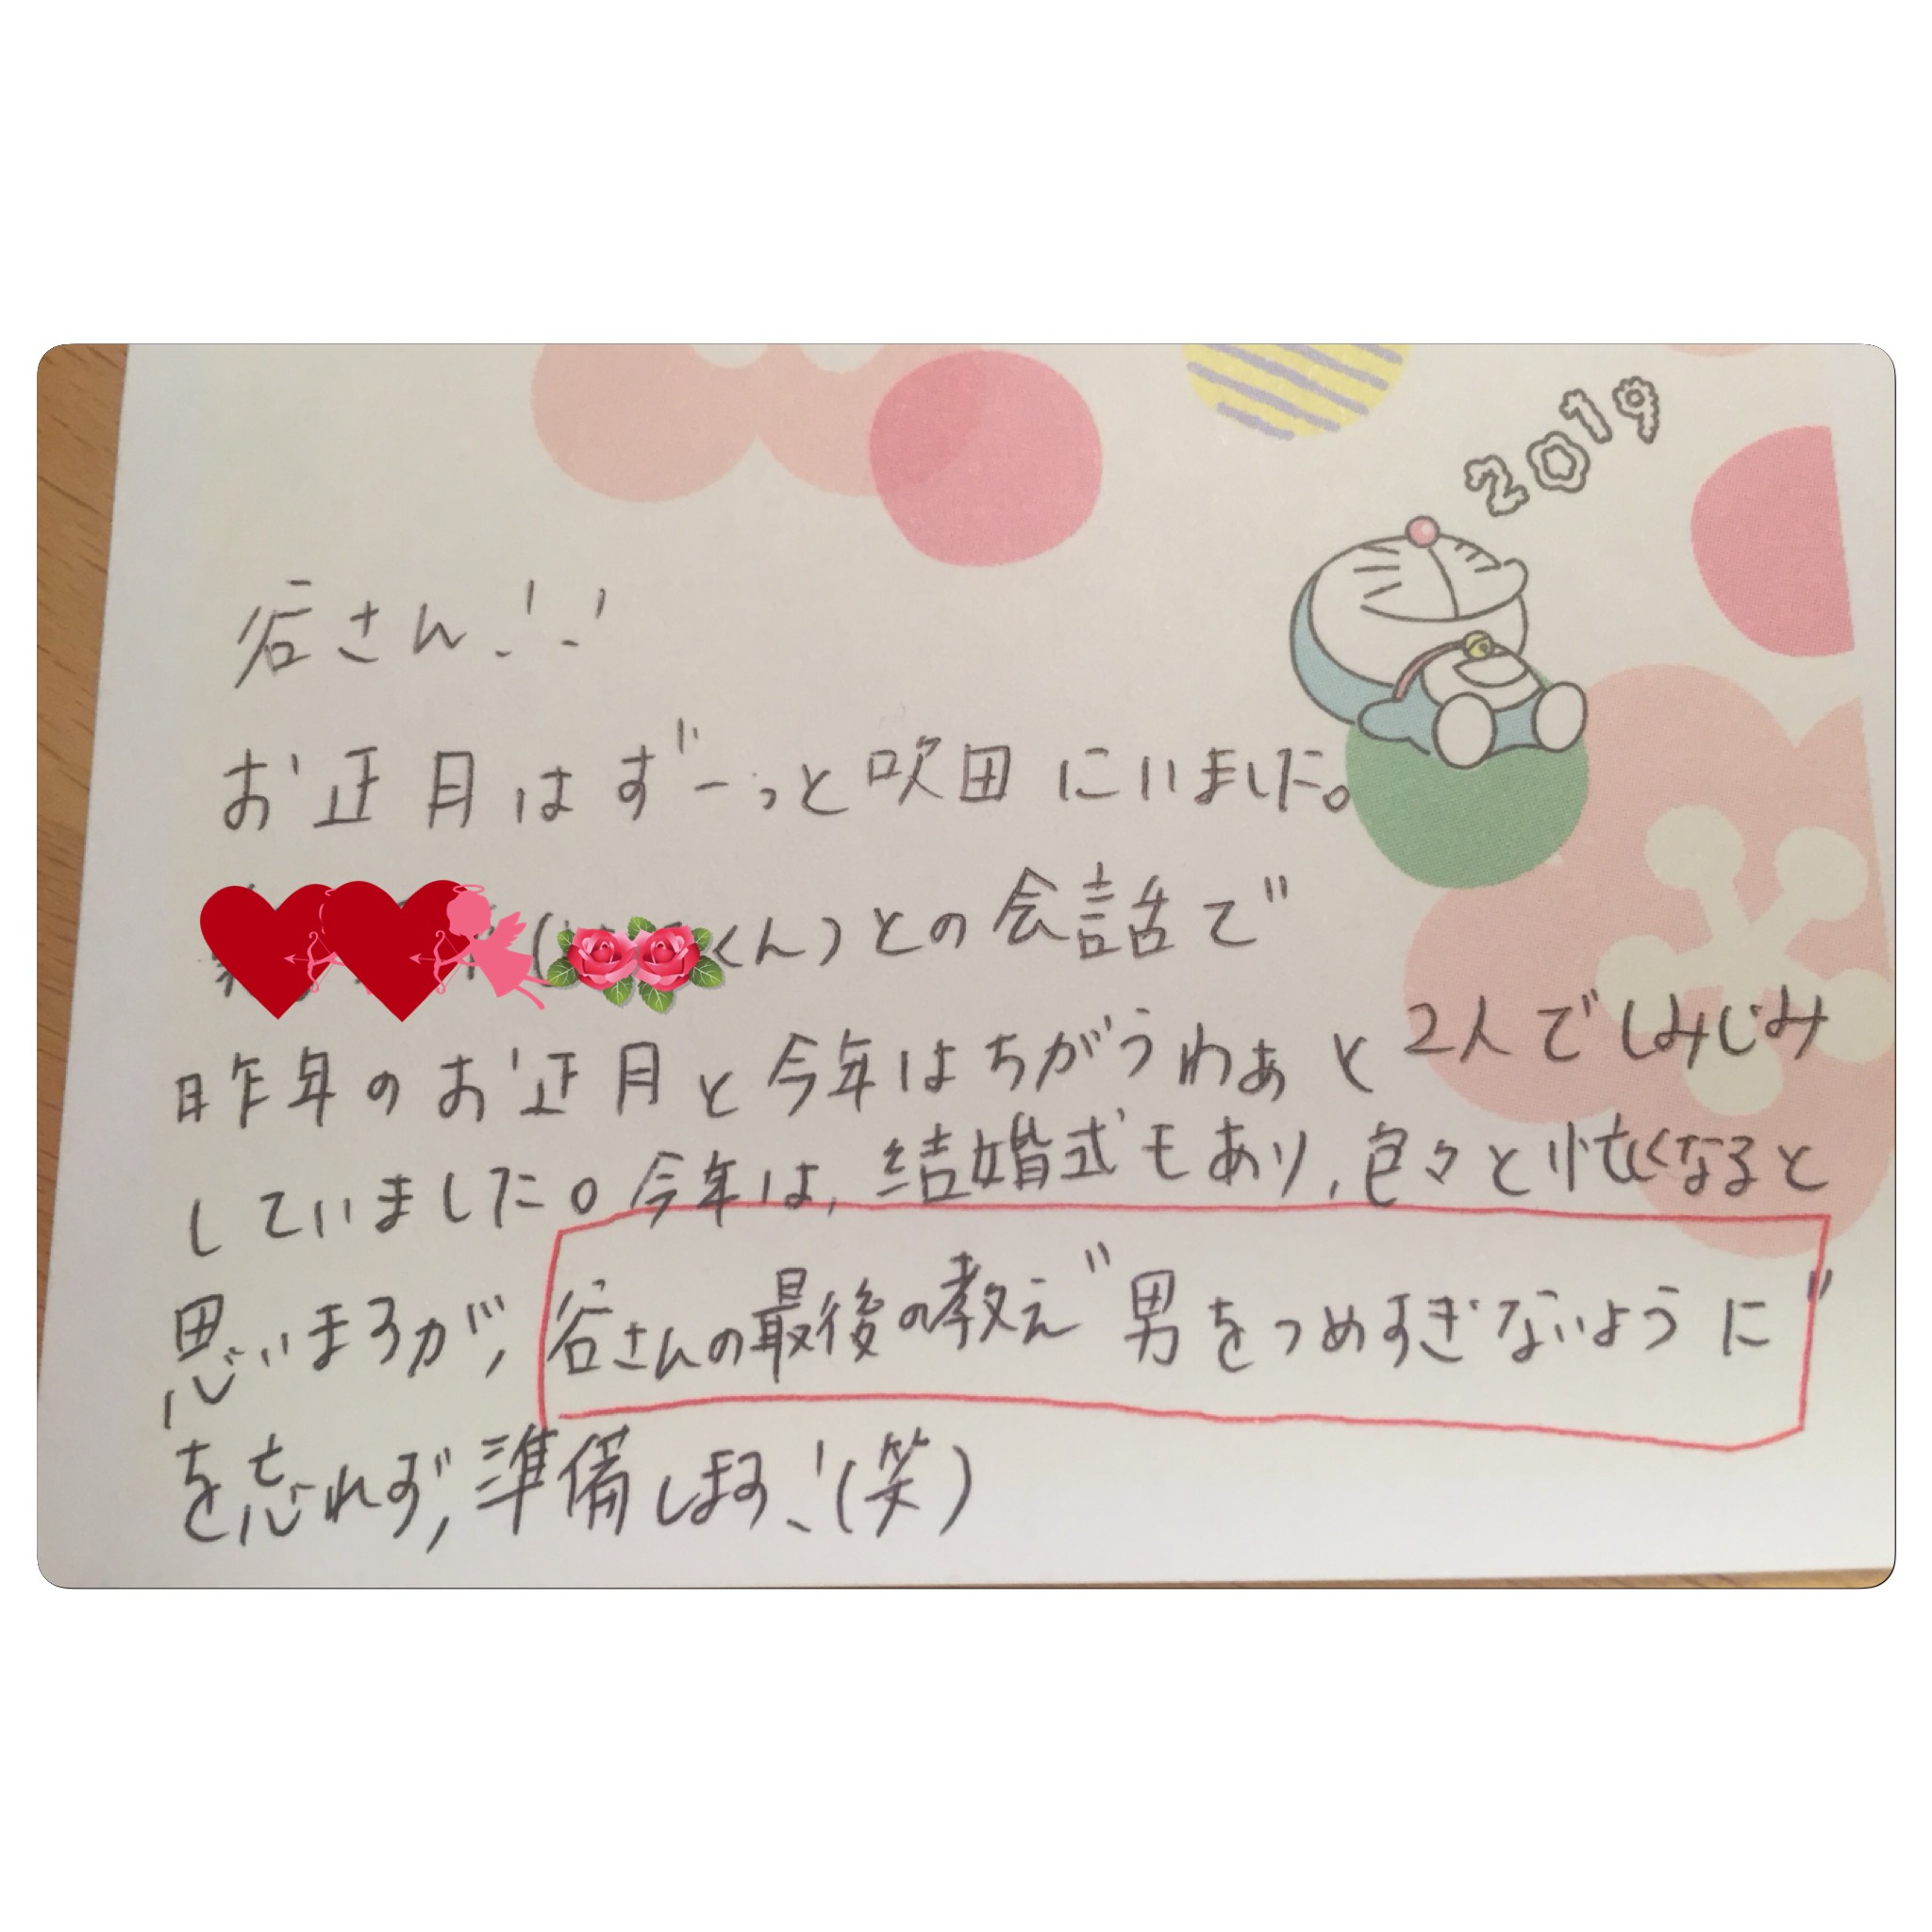 2019
谷さん!!
お正月はずーっと吹田にいました。
(くん)との会話で
昨年のお正月と今年はちがうわぁと2人でしみじみ
していました。今年は、結婚式もあり、色々と忙しくなると
思いますが、谷さんの最後の教え"男をつめすぎないように"
を忘れず、準備します!(笑)